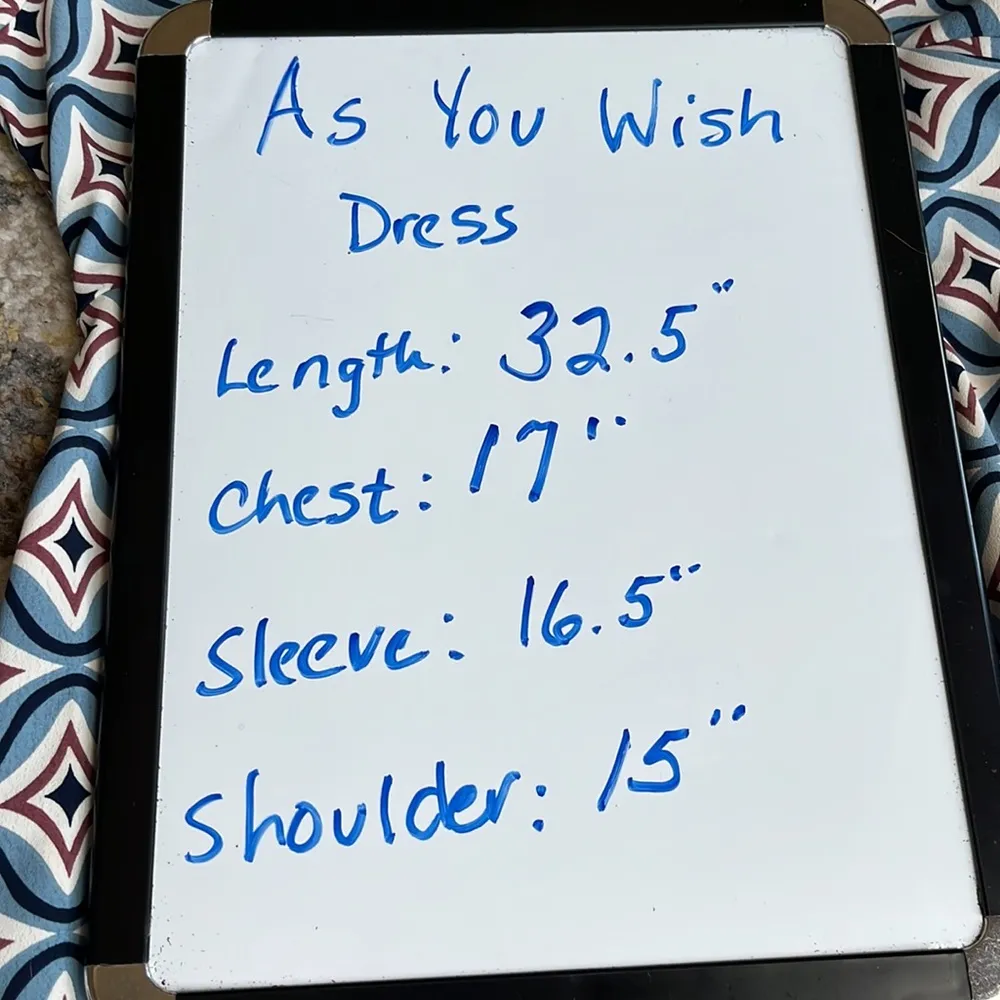 As You Wish
Dress
Length: 32.5"
Chest: 17"
Sleeve: 16.5"
Shoulder: 15"